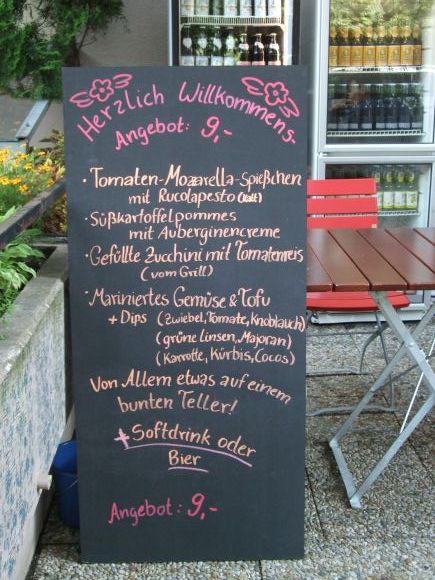 Herzlich Willkommens-
Angebot: 9,-
· Tomaten-Mozzarella-Spießchen
mit Rucolapesto (kalt)
· Süßkartoffelpommes
mit Auberginencreme
· Gefüllte Zucchini mit Tomatenreis
(vom Grill)
· Mariniertes Gemüse & Tofu
+ Dips (Zwiebel, Tomate, Knoblauch)
(grüne Linsen, Majoran)
(Karrotte, Kürbis, Cocos)
Von Allem etwas auf einem
bunten Teller!
+ Softdrink oder
Bier
Angebot: 9,-